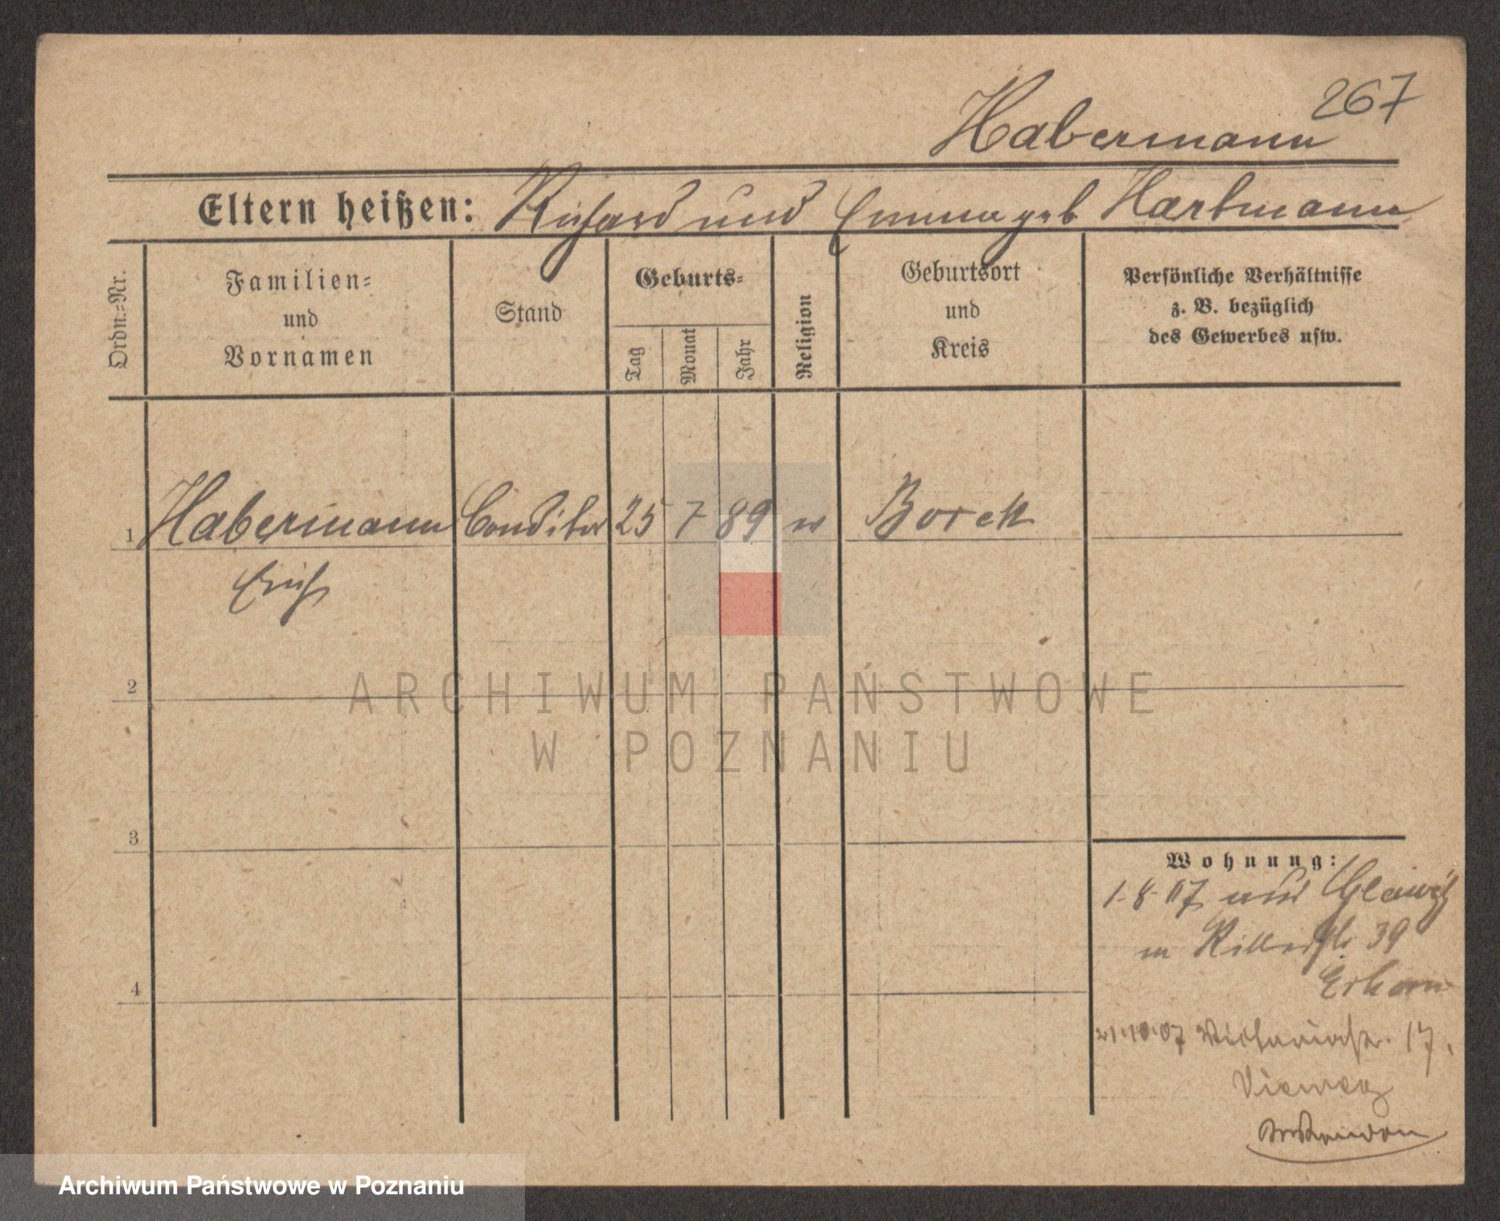 267
Habermann
Eltern heißen: Richard und Emma geb Hartmann
Ordn.=Nr.
Familien=
und
Vornamen
Stand
Geburts=
Tag
Monat
Jahr
Religion
Geburtsort
und
Kreis
Persönliche Verhältnisse
z. B. bezüglich
des Gewerbes usw.
1 Habermann Conditor 25 7 89 Borek
Erich
2
ARCHIWUM PAŃSTWOWE
W POZNANIU
3
Wohnung:
1.8.07 aus Gleiwitz
in Ritterstr 39
4
21.10.07 Victoriastr. 17.
Vieweg
Archiwum Państwowe w Poznaniu